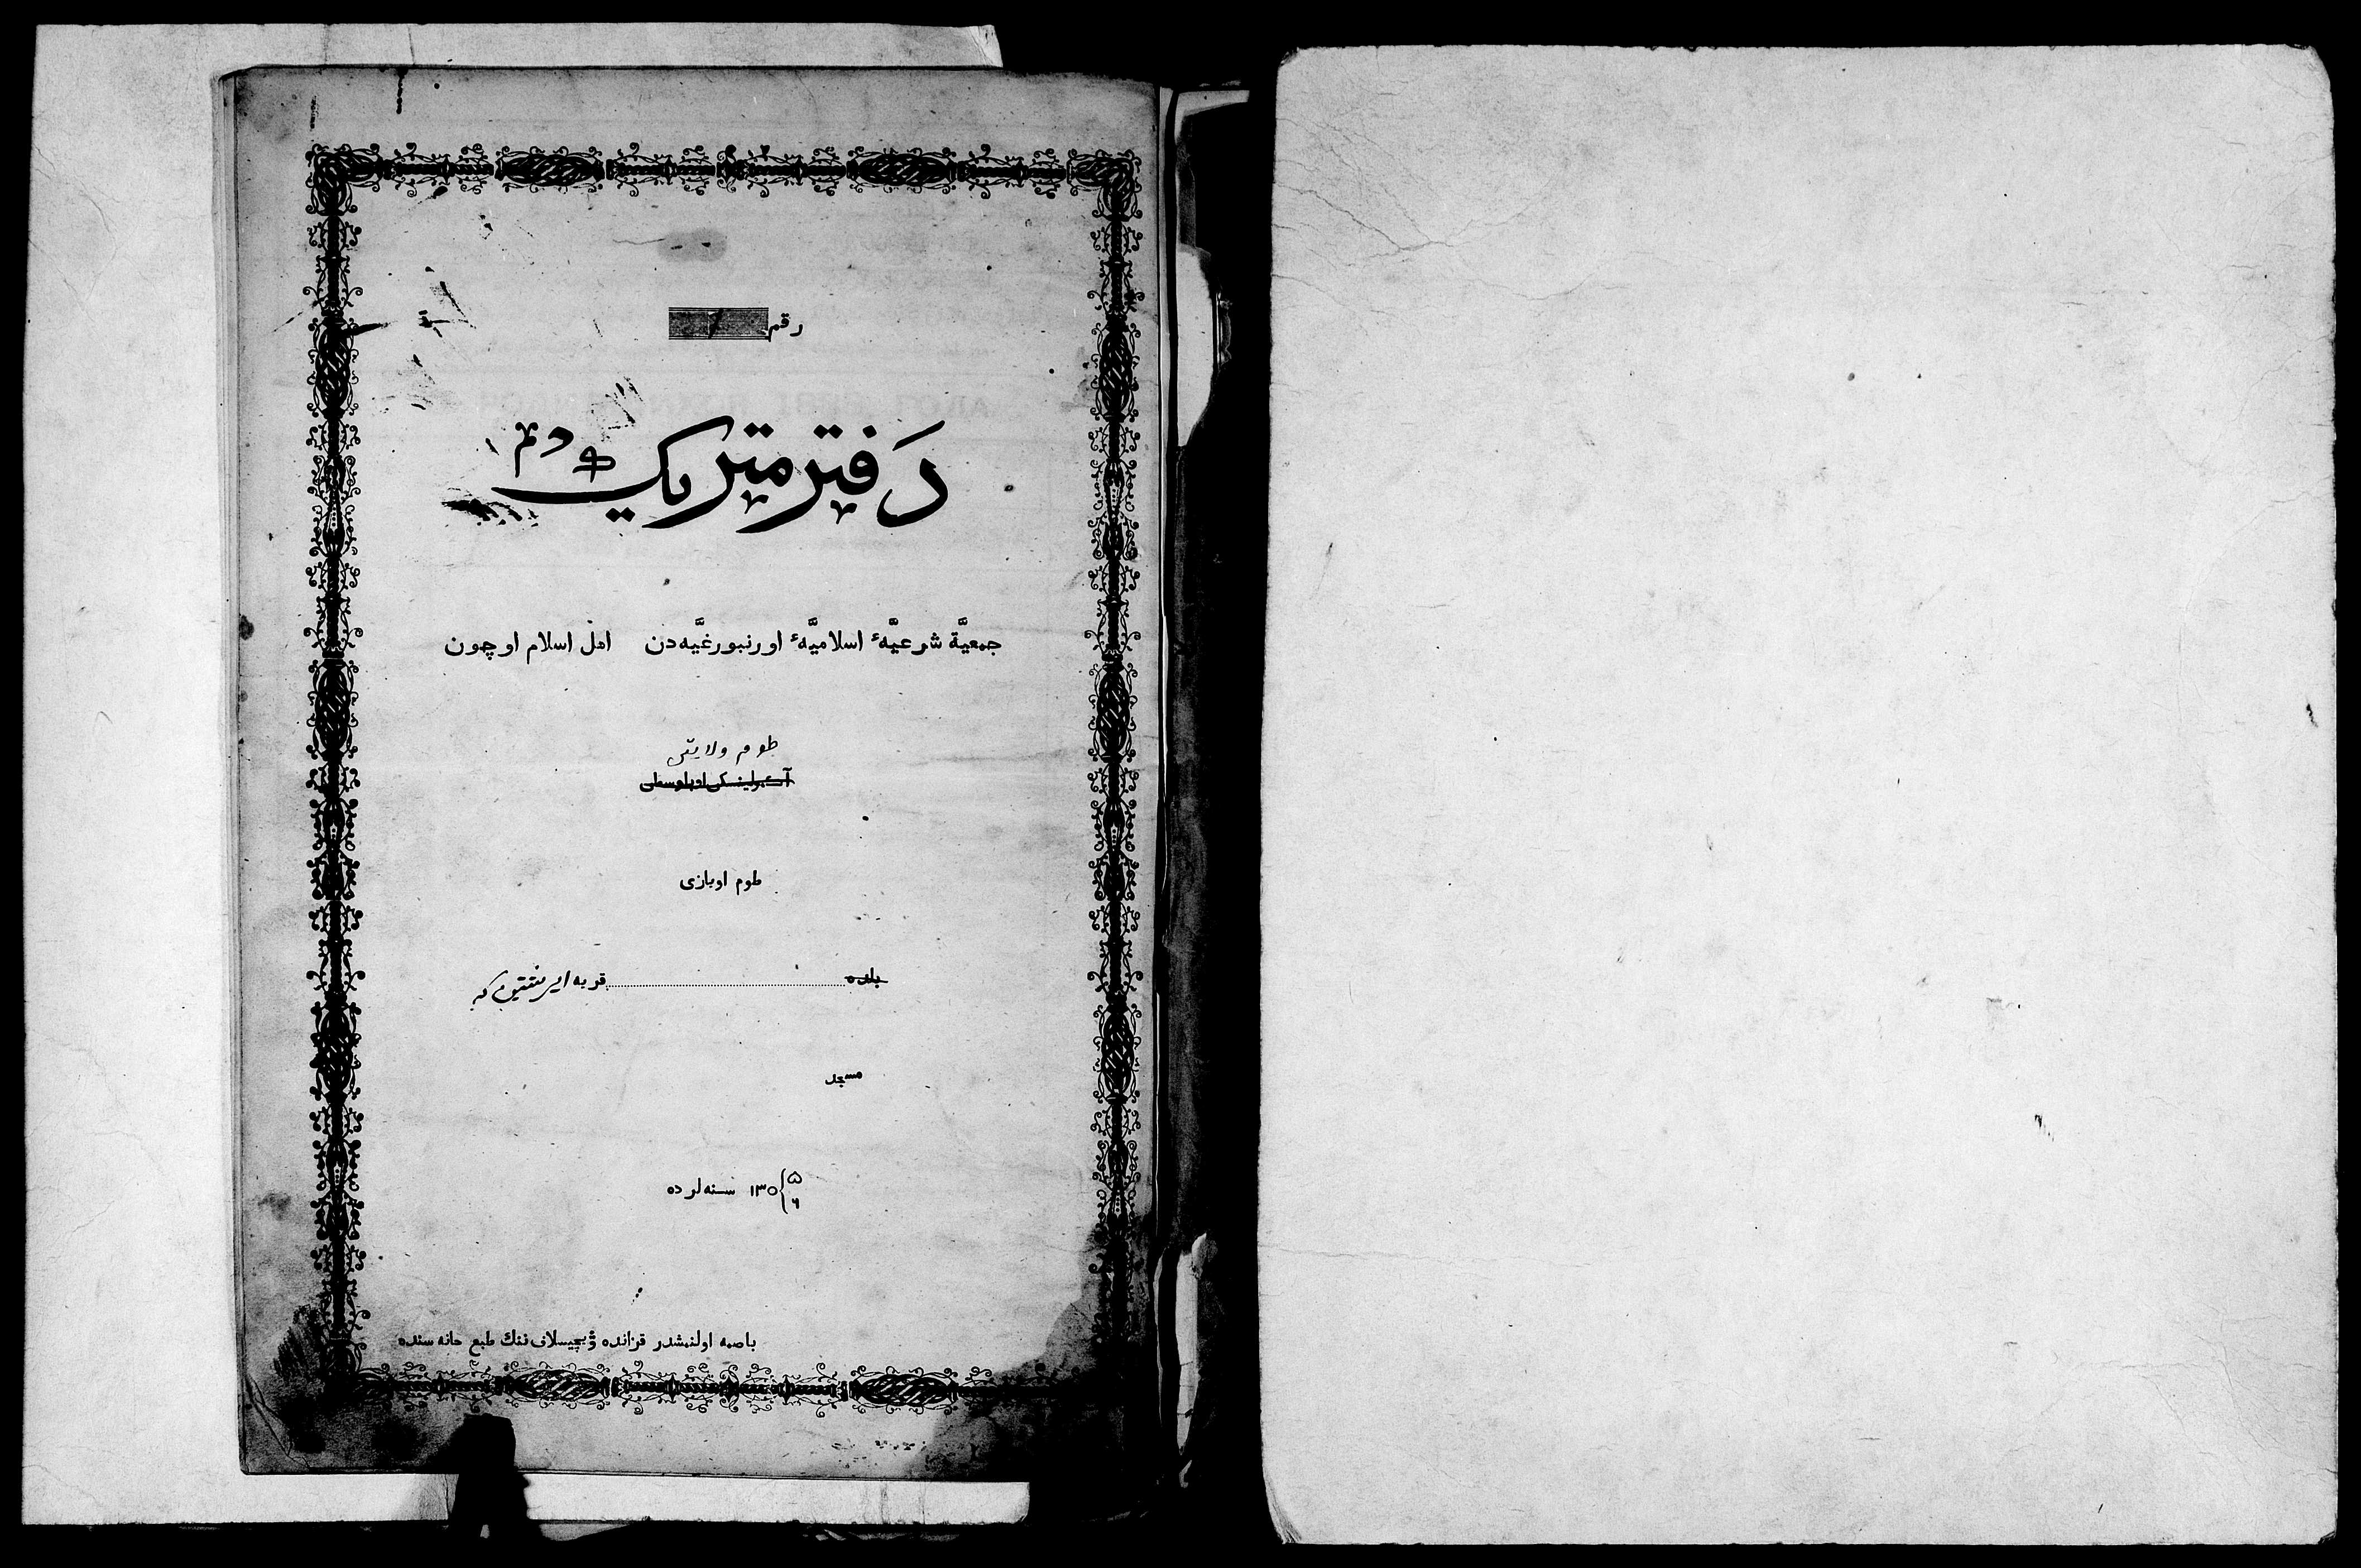 رقم
دفتر متریک
جمعیّة شرعیّهٔ اسلامیّهٔ اورنبورغیّه‌دن اهل اسلام اوچون
طوم ولایتی
آقمولینسکی اوبلوسطی
طوم اویازی
بلده قریه
مسجد
١٣٥{٥ ٦ سنه‌لر ده
باصمه اولنمشدر قزانده ۋیچیسلاف ننك طبع خانه سنده